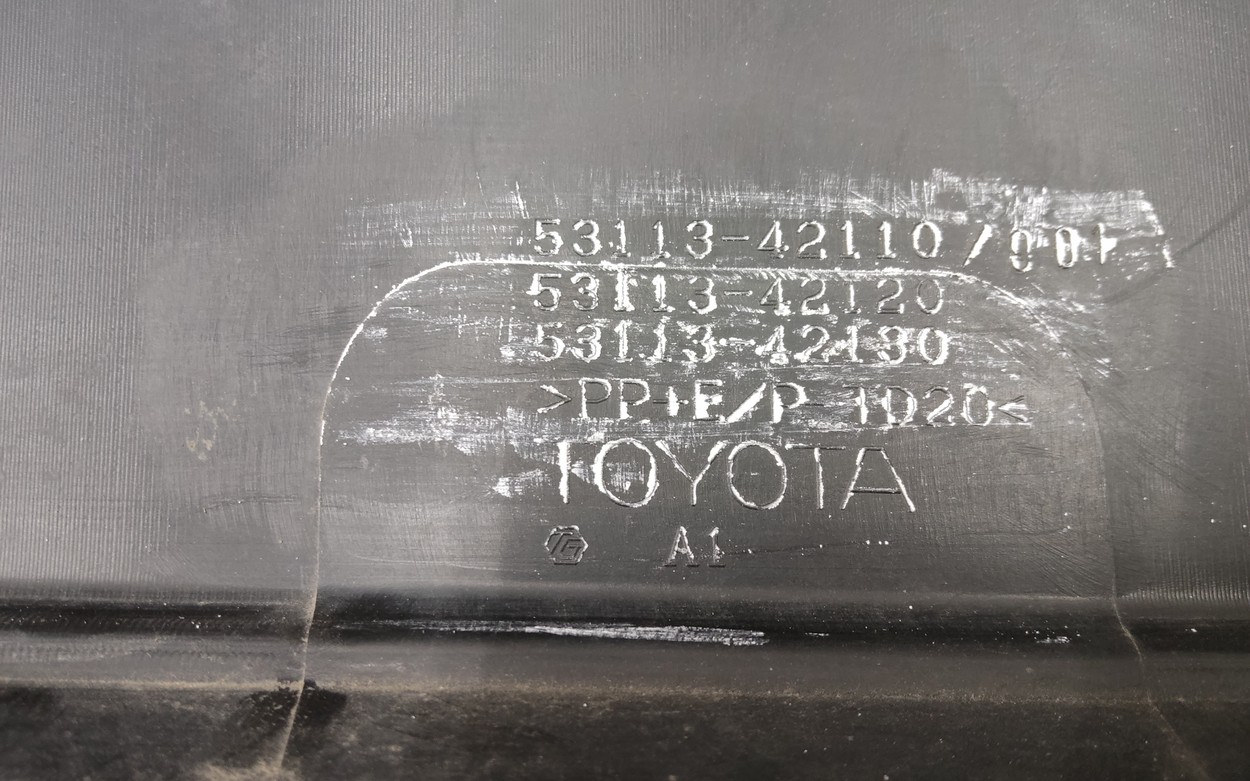 53113-42110/001
53113-42120
53113-42130
>PP+E/P-TD20<
TOYOTA
TG A1